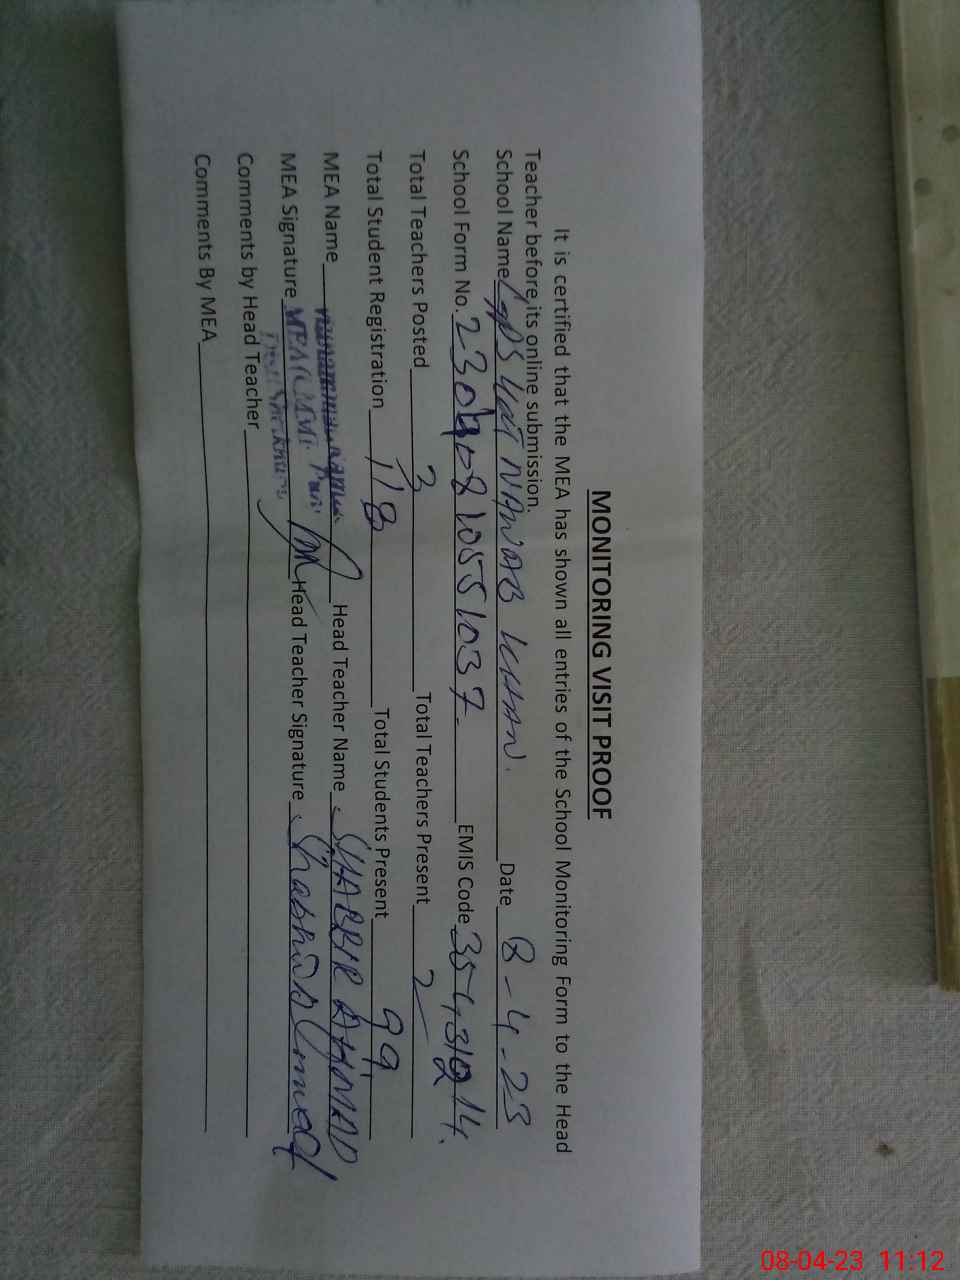 MONITORING VISIT PROOF
It is certified that the MEA has shown all entries of the School Monitoring Form to the Head
Teacher before its online submission.
School Name GPS NAWAB KHAN. Date 8-4-23
School Form No. 23040810551037 EMIS Code 354310214.
Total Teachers Posted Total Teachers Present 2
Total Student Registration 118 Total Students Present 99
MEA Name Head Teacher Name SHABBIR AHMAD
MEA Signature Head Teacher Signature
Comments by Head Teacher
Comments By MEA
08-04-23 11:12